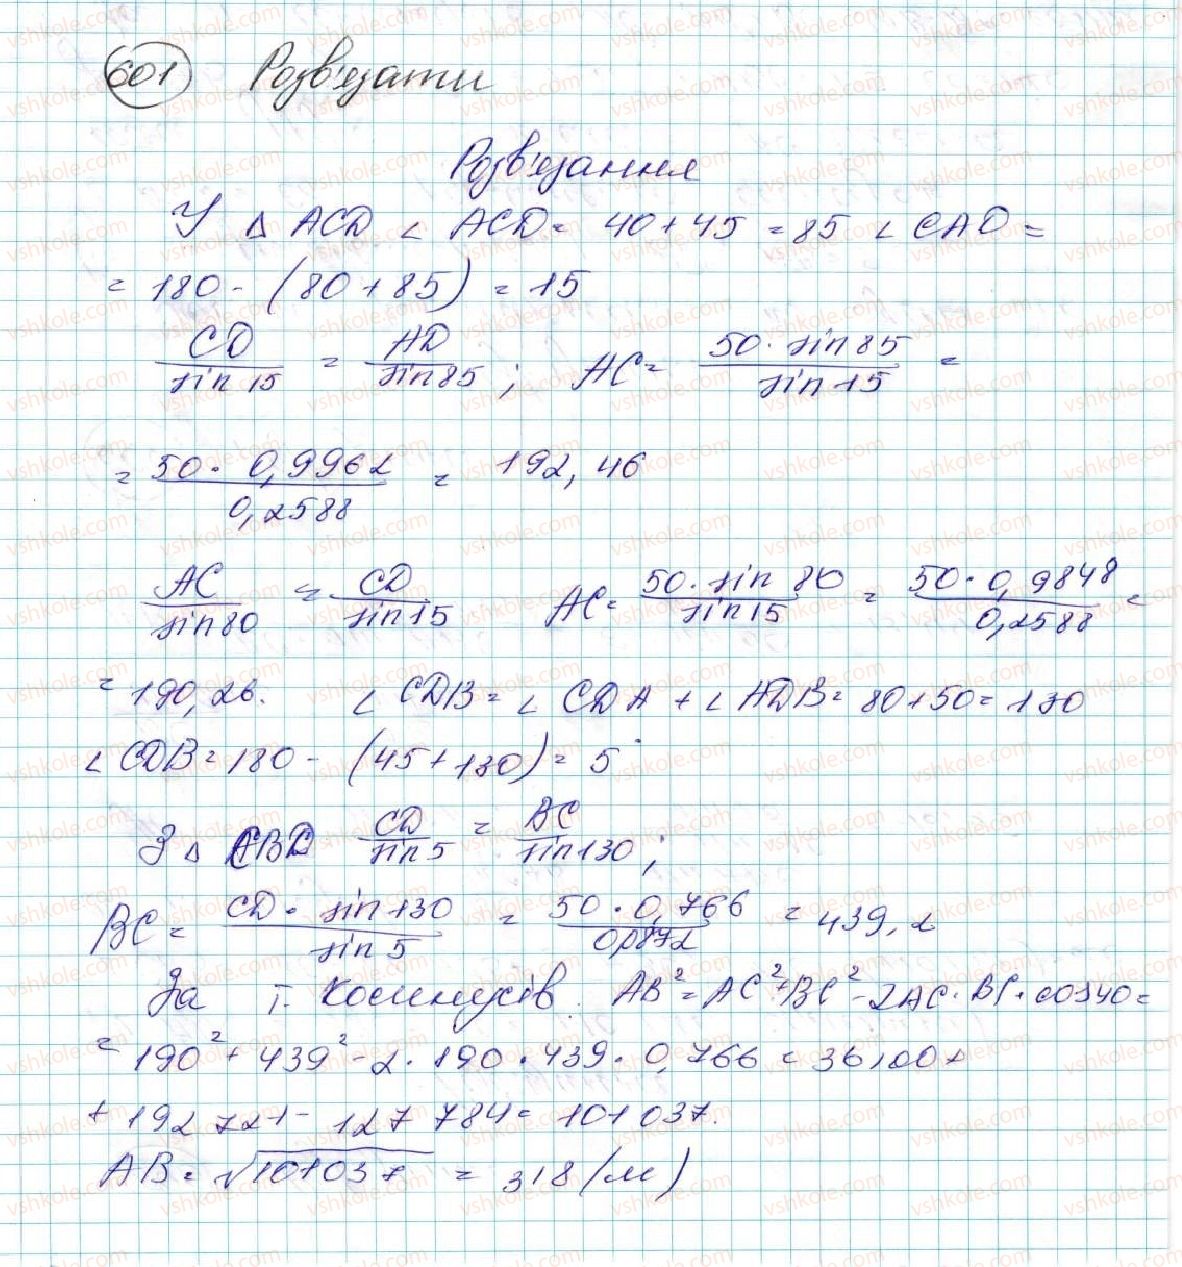 601 Розв'язати
Розв'язання
У Δ ACD ∠ ACD = 40 + 45 = 85 ∠ CAD =
= 180 - (80 + 85) = 15
CD/sin 15 = AD/sin 85 ; AC = 50 · sin 85/sin 15 =
= 50 · 0,9962/0,2588 = 192,46
AC/sin 80 = CD/sin 15 AC = 50 · sin 80/sin 15 = 50 · 0,9848/0,2588 =
= 190,26. ∠ CDB = ∠ CDA + ∠ ADB = 80 + 50 = 130
∠ CDB = 180 - (45 + 130) = 5°
З Δ CBD CD/sin 5 = BC/sin 130 ;
BC = CD · sin 130/sin 5 = 50 · 0,766/0,0872 = 439,2
За т. косинусів. AB² = AC² + BC² - 2AC · BC · cos 40 =
= 190² + 439² - 2 · 190 · 439 · 0,766 = 36100 +
+ 192 721 - 127 784 = 101 037.
AB = √101037 = 318 (м)